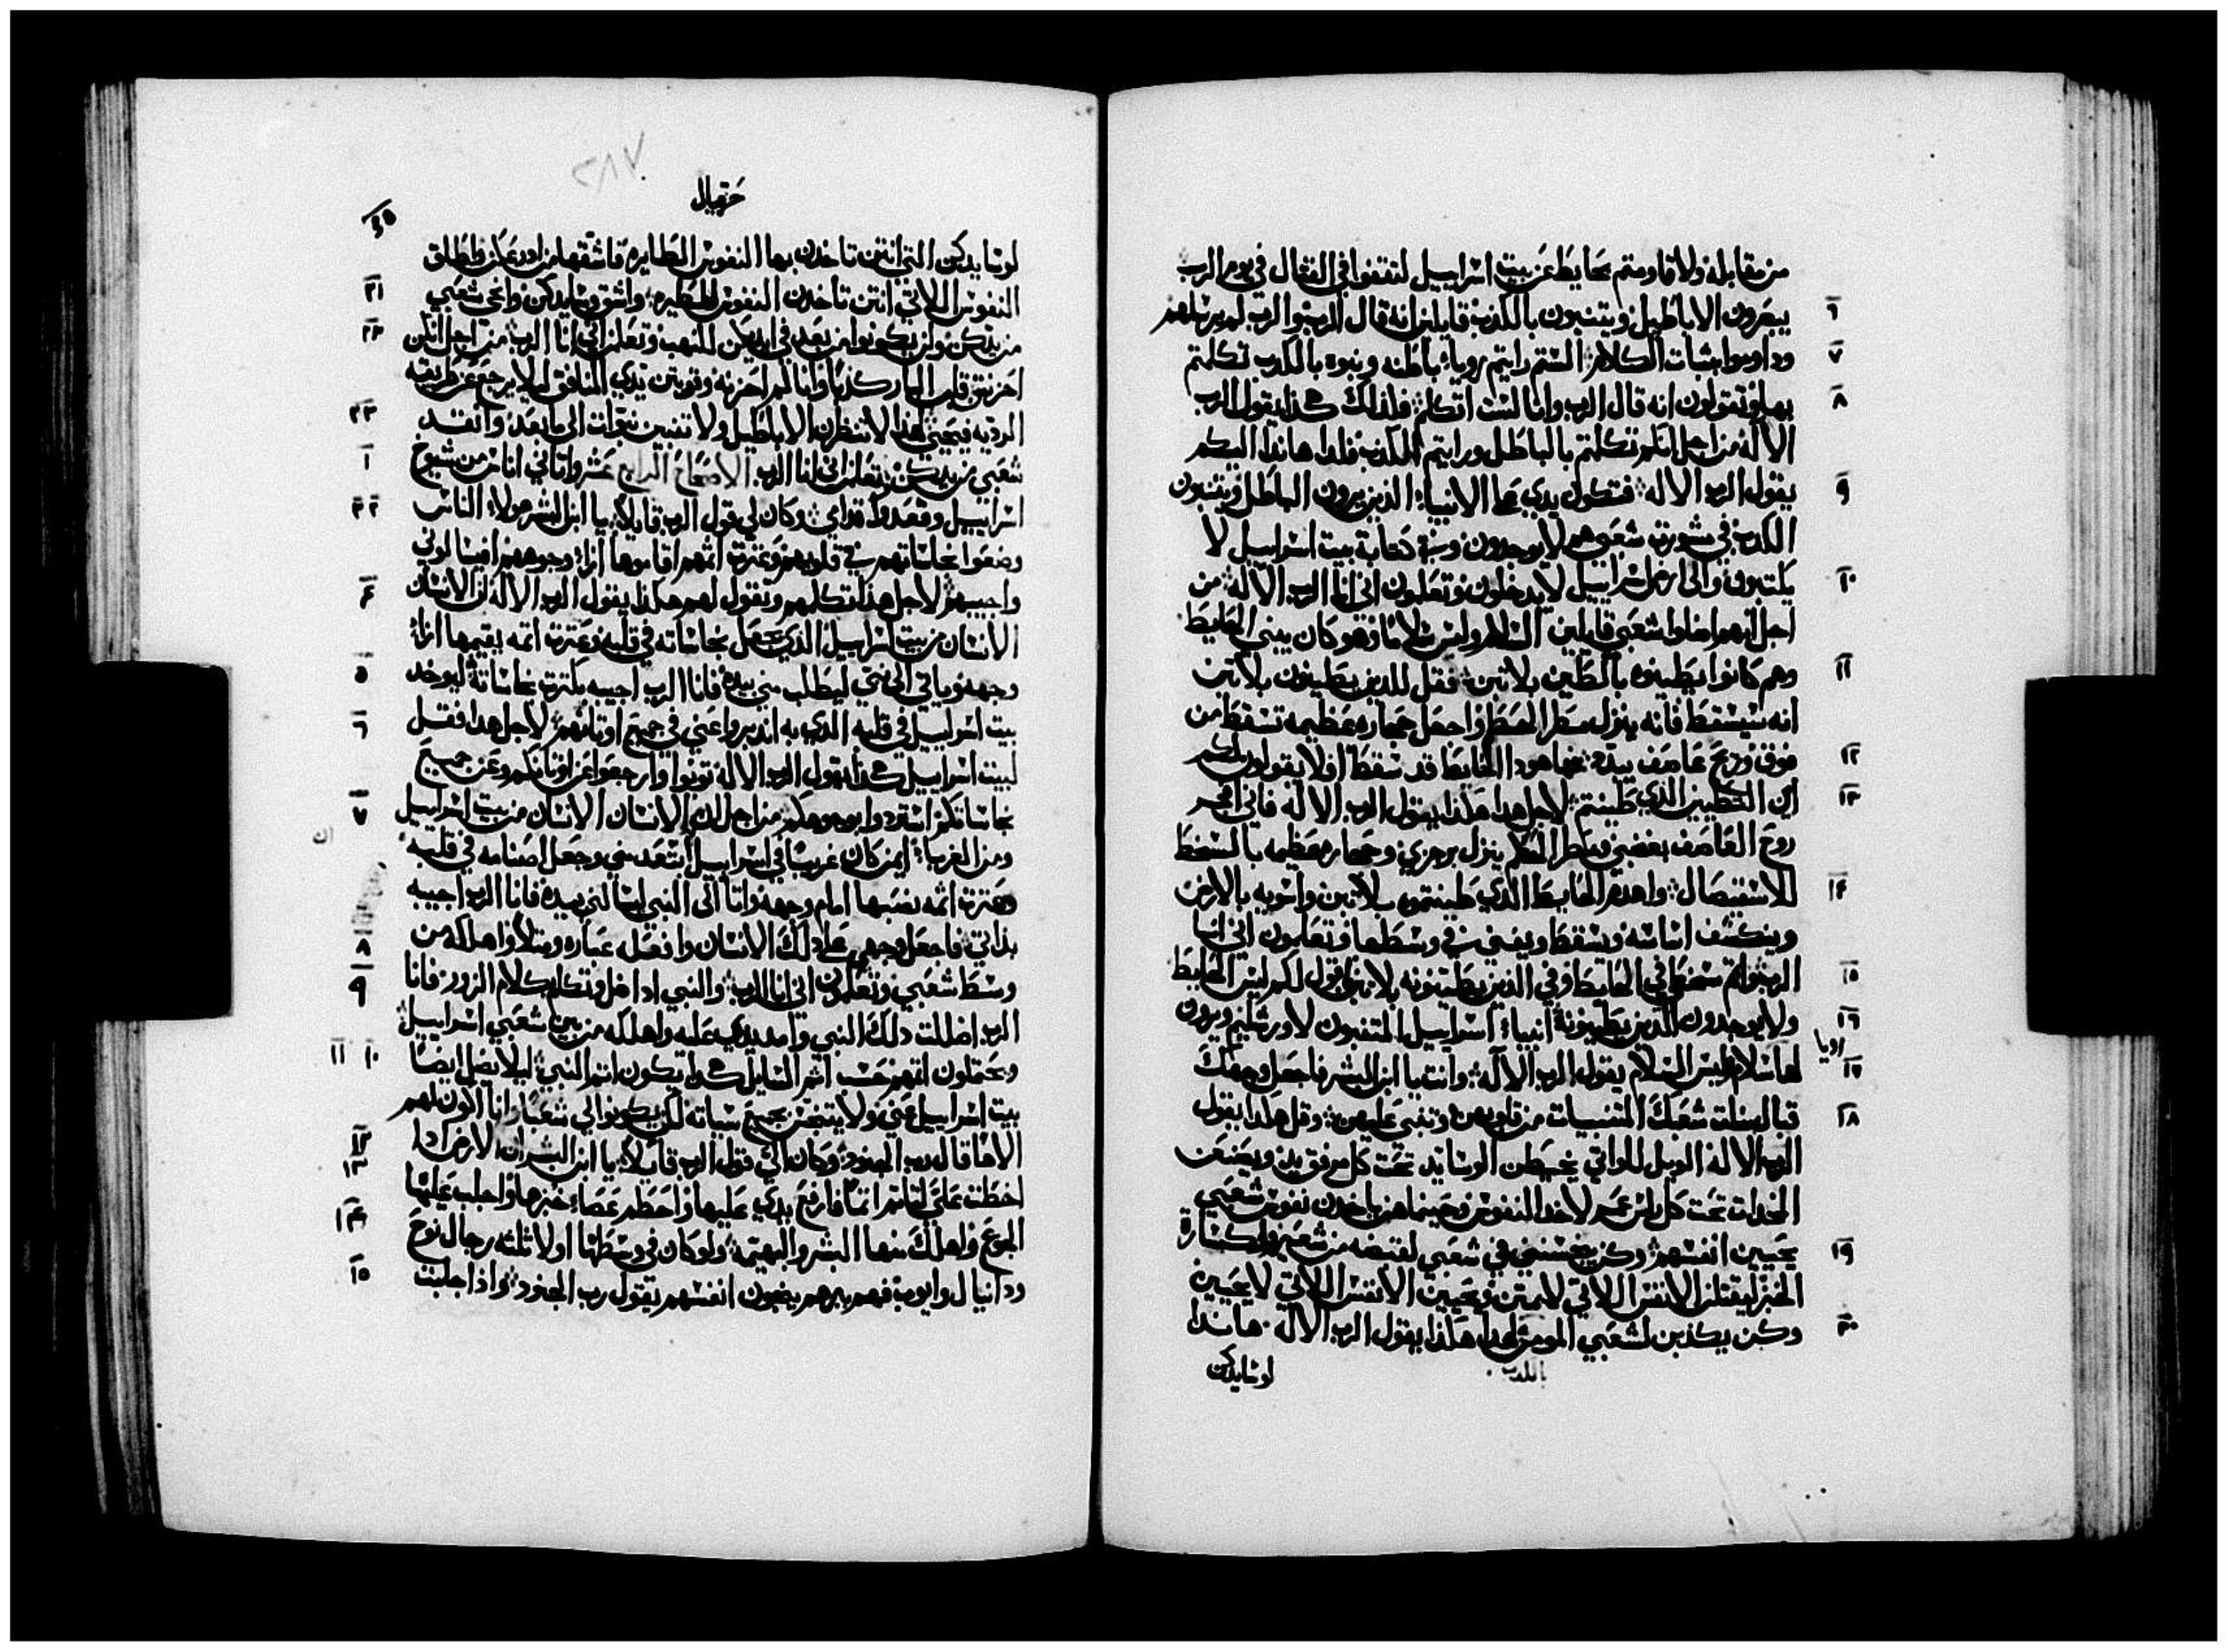 من مقابله ولا قاومتم بحايط عن بيت اسراييل لتقفوا في القتال في يوم الرب
٦ يبصرون الاباطيل ويتنبون بالكذب قايلين انه قال الرب والرب لم يرسلهم
٧ وداوموا بثبات الكلام الستم رايتم رويا باطله ونبوه بالكدب تكلمتم
٨ بها وتقولون انه قال الرب وانا لست اتكلم فلذلك هكذا يقول الرب
الاله من اجل انكم تكلمتم بالباطل ورايتم الكذب فلهذا هاندا اليكم
٩ يقول الرب الاله فتكون يدي على الانبياء الذين يرون الباطل ويتنبون
الكدب في مشورة شعبي هم لا يوجدون وفي كتابة بيت اسراييل لا
١٠ يكتبون والى ارض اسراييل لا يدخلون وتعلمون اني انا الرب الاله من
اجل انهم اضلوا شعبي قايلين السلام وليس سلاما وهو كان يبني الحايط
١١ وهم كانوا يطينوه بالطين بلا تبن فقل للذين يطينون بلا تبن
انه سيسقط فانه ينزل مطر واجعل حجاره عظيمه تسقط من
١٢ فوق وريح عاصف يبدده فها هودا الحايط قد سقط افلا يقولون لكم
١٣ اين التطيين الذي طينتم لاجل هدا هكذا يقول الرب الاله فاني افجر
روح العاصف بغضبي ومطر ينزل برجزي وحجاره عظيمه بالسخط
١٤ للاستيصال واهدم الحايط الذي طينتموه بلا تبن واسويه بالارض
وينكشف اساسه ويسقط ويفنى في وسطها وتعلمون اني انا
١٥ الرب واتم سخطي في الحايط وفي الذين يطينونه بلا تبن اقول لكم ليس الحايط
١٦ ولا يوجدون الذين يطينونه انبياء اسراييل المتنبون لاورشليم ويرون
رويا
١٧ لها سلام وليس السلام يقول الرب الاله وانت يا ابن البشر فاجعل وجهك
١٨ قبال بنات شعبك المتنبيات من قلوبهن وتنبي عليهن وقل هكذا يقول
الرب الاله الويل للواتي يخيطن الوسايد تحت كل مرفق يد ويصنعن
المخدات تحت كل راس لاخد النفوس وحينما هن ياخدن نفوس شعبي
١٩ يحيين انفسهم وكن في شعبي لقبضه من شعير ولكسارة
الخبز ليقتلن الانفس اللاتي لا يمتن ويحيين الانفس اللاتي لا يحيين
٢٠ وكن يكذبن لشعبي هكذا يقول الرب الاله هاندا
بالكدب
لوسايدكن
حزقيال
٢٨٧
لوسايدكن التي انتن تاخدن بها النفوس الطايره فاشققها من اذرعكن واطلق
٢١ النفوس اللاتي انتن تاخدن النفوس لتطير واشق وسايدكن وانجي شعبي
٢٢ من يدكن ولن يكونوا من بعد في ايديكن للنهب وتعلمن اني انا الرب من اجل انكن
احزنتن قلب البار كذبا وانا لم احزنه وقويتن يدي المنافق ليلا يرجع عن طريقه
٢٣ الرديه فيحيى لهذا لا تنظرن الاباطيل ولا تتنبين نبوات الى ما بعد وانقد
١ شعبي من يديكن وتعلمن اني انا الرب الاصحاح الرابع عشر واتاني اناس من شيوخ
٢ ٣ اسراييل وقعدوا قدامي وكان لي قول الرب قايلا يا ابن البشر هولاء الناس
وضعوا نجاساتهم في قلوبهم وعترة اثمهم اقاموها ازاء وجوههم افيسالوني
٤ واجيبهم لاجل هذا تكلمهم وتقول لهم هكذا يقول الرب الاله ان الانسان
الانسان من بيت اسراييل الذي يجعل نجاساته في قلبه وعترة اثمه يقيمها ازاء
٥ وجهه وياتي الى النبي ليطلب مني بيده فانا الرب اجيبه بكثرة نجاساته ليوخد
٦ بيت اسراييل في قلبه الدي به اندبروا عني في جميع اوثانهم لاجل هدا فقل
لبيت اسراييل هكذا يقول الرب الاله توبوا وارجعوا عن اوثانكم وعن جميع
٧ نجاساتكم استردوا بوجوهكم من اجل ان الانسان الانسان من بيت اسراييل
ان
ومن الغرباء ايمن كان غريبا في اسراييل ابتعد مني وجعل اصنامه في قلبه
وعترة اثمه نصبها امام وجهه واتا الى النبي ليسالني بيده فانا الرب اجيبه
٨ بذاتي فاجعل وجهي على دلك الانسان وافعله عباره ومتلا واهلكه من
٩ وسط شعبي وتعلمون اني انا الرب والنبي ادا ضل وتكلم بكلام الزور فانا
الرب اضللت دلك النبي وامد يدي عليه واهلكه من بين شعبي اسراييل
١٠ ١١ ويحتملون اثمهم حسب اثم السايل هكدا يكون اثم النبي ليلا يضل ايضا
بيت اسراييل عني ولا يتنجس بجميع سياته لكن يكونوا لي شعبا وانا اكون لهم
١٢ الاها قال رب الجنود وكان الي قول الرب قايلا يا ابن البشر ان الارض ادا
١٣ اخطت علي لتاثم اثما فارفع يدي عليها واحطم عصاء خبزها واجلب عليها
١٤ الجوع واهلك منها البشر والبهيمة ولو كان في وسطها اولا ثلثه رجال نوح
١٥ ودانيال وايوب فهم ببرهم ينجون انفسهم يقول رب الجنود واذا جلبت